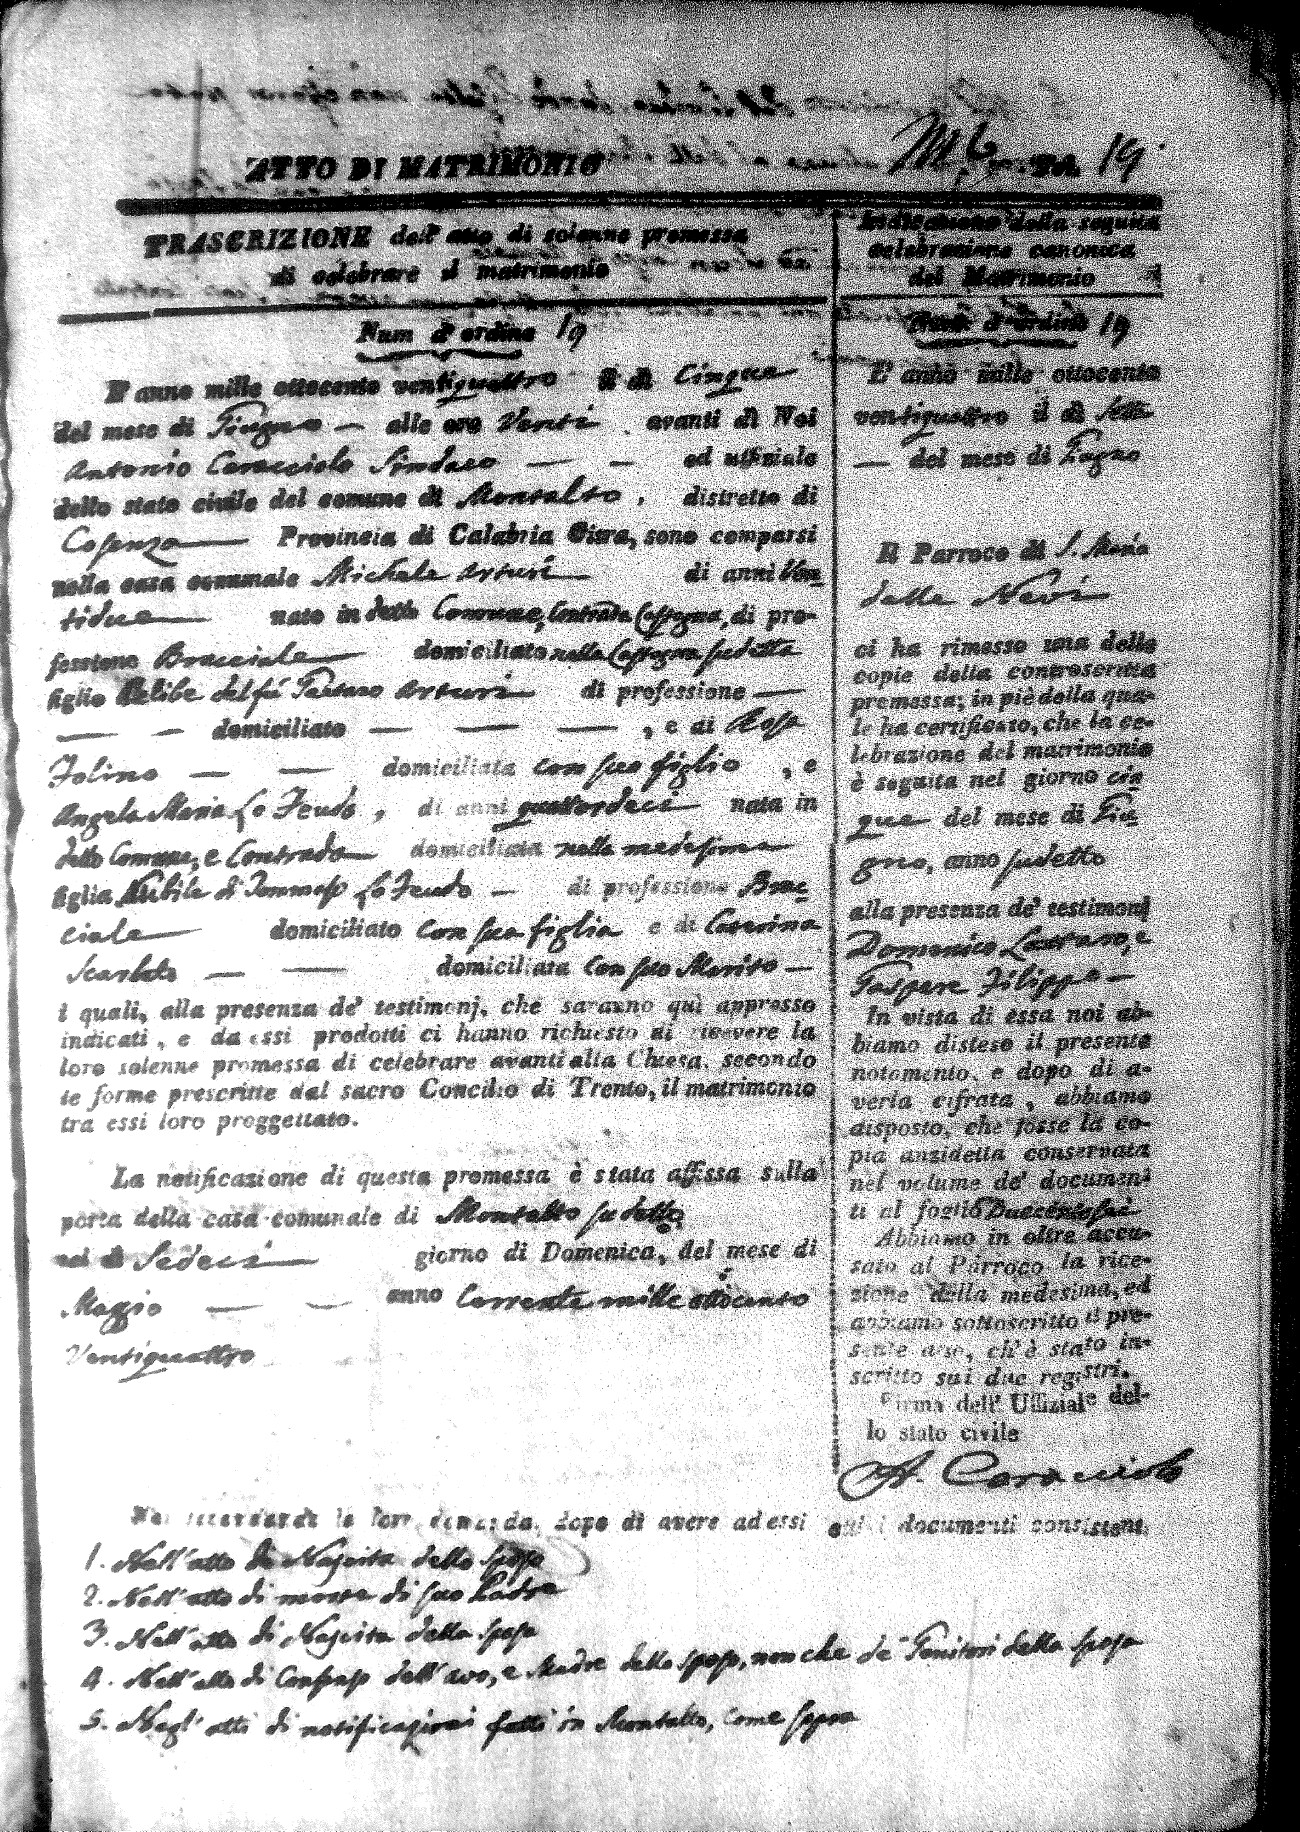 ATTO DI MATRIMONIO
19
TRASCRIZIONE dell' atto di solenne promessa
di celebrare il matrimonio
Num d' ordine 19
L' anno mille ottocento ventiquattro il dì Cinque
del mese di Giugno — alle ore Venti avanti di Noi
Antonio Caracciolo Sindaco — — ed uffiziale
dello stato civile del comune di Montalto, distretto di
Cosenza Provincia di Calabria Citra, sono comparsi
nella casa comunale Michele Arturi di anni Ven
tidue nato in detto Comune, Contrada, di pro-
fessione Bracciale domiciliato nella sudetta
figlio del fù Gaetano Arturi di professione —
— — domiciliato — — — , e di Rosa
Folino — — domiciliata con suo figlio , e
Angela Maria Lo Feudo , di anni quattordeci nata in
detto Comune, e Contrada domiciliata nella medesima
figlia Nubile di Tommaso Lo Feudo — di professione Brac-
ciale domiciliato con sua figlia e di Caterina
Scarlato — — domiciliata con suo Marito —
i quali, alla presenza de' testimonj, che saranno quì appresso
indicati, e da essi prodotti ci hanno richiesto di ricevere la
loro solenne promessa di celebrare avanti alla Chiesa, secondo
le forme prescritte dal sacro Concilio di Trento, il matrimonio
tra essi loro proggettato.
La notificazione di questa promessa è stata affissa sulla
porta della casa comunale di Montalto sudetto
nel dì Sedeci giorno di Domenica, del mese di
Maggio — — anno Corrente mille ottocento
Ventiquattro
Indicazione della seguita
celebrazione canonica
del Matrimonio
Num d' ordine 19
L' anno mille ottocento
ventiquattro il dì Sette
— del mese di Giugno
Il Parroco di S. Maria
della Nevi
ci ha rimesso una delle
copie della controscritta
promessa; in piè della qua-
le ha certificato, che la ce-
lebrazione del matrimonio
è seguita nel giorno cin
que del mese di Giu
gno, anno sudetto
alla presenza de' testimonj
Domenico Lattaro, e
Gaspare Filippo —
In vista di essa noi ab-
biamo disteso il presente
notamento, e dopo di a-
verla cifrata, abbiamo
disposto, che fosse la co-
pia anzidetta conservata
nel volume de' documen
ti al foglio Duecentosei
Abbiamo in oltre accu-
sato al Parroco la rice-
zione della medesima, ed
abbiamo sottoscritto il pre-
sente atto, ch' è stato in-
scritto sui due registri.
Firma dell' Uffiziale del-
lo stato civile
A. Caracciolo
Noi secondando la loro domanda, dopo di avere ad essi documenti consistenti
1. Nell' atto di Nascita dello sposo
2. Nell' atto di morte di suo Padre
3. Nell' atto di Nascita della sposa
4. Nell' atto di Consenso dell' avo, e Madre dello sposo, non che de' Genitori della sposa
5. Negl' atti di notificazioni fatti in Montalto, come sopra